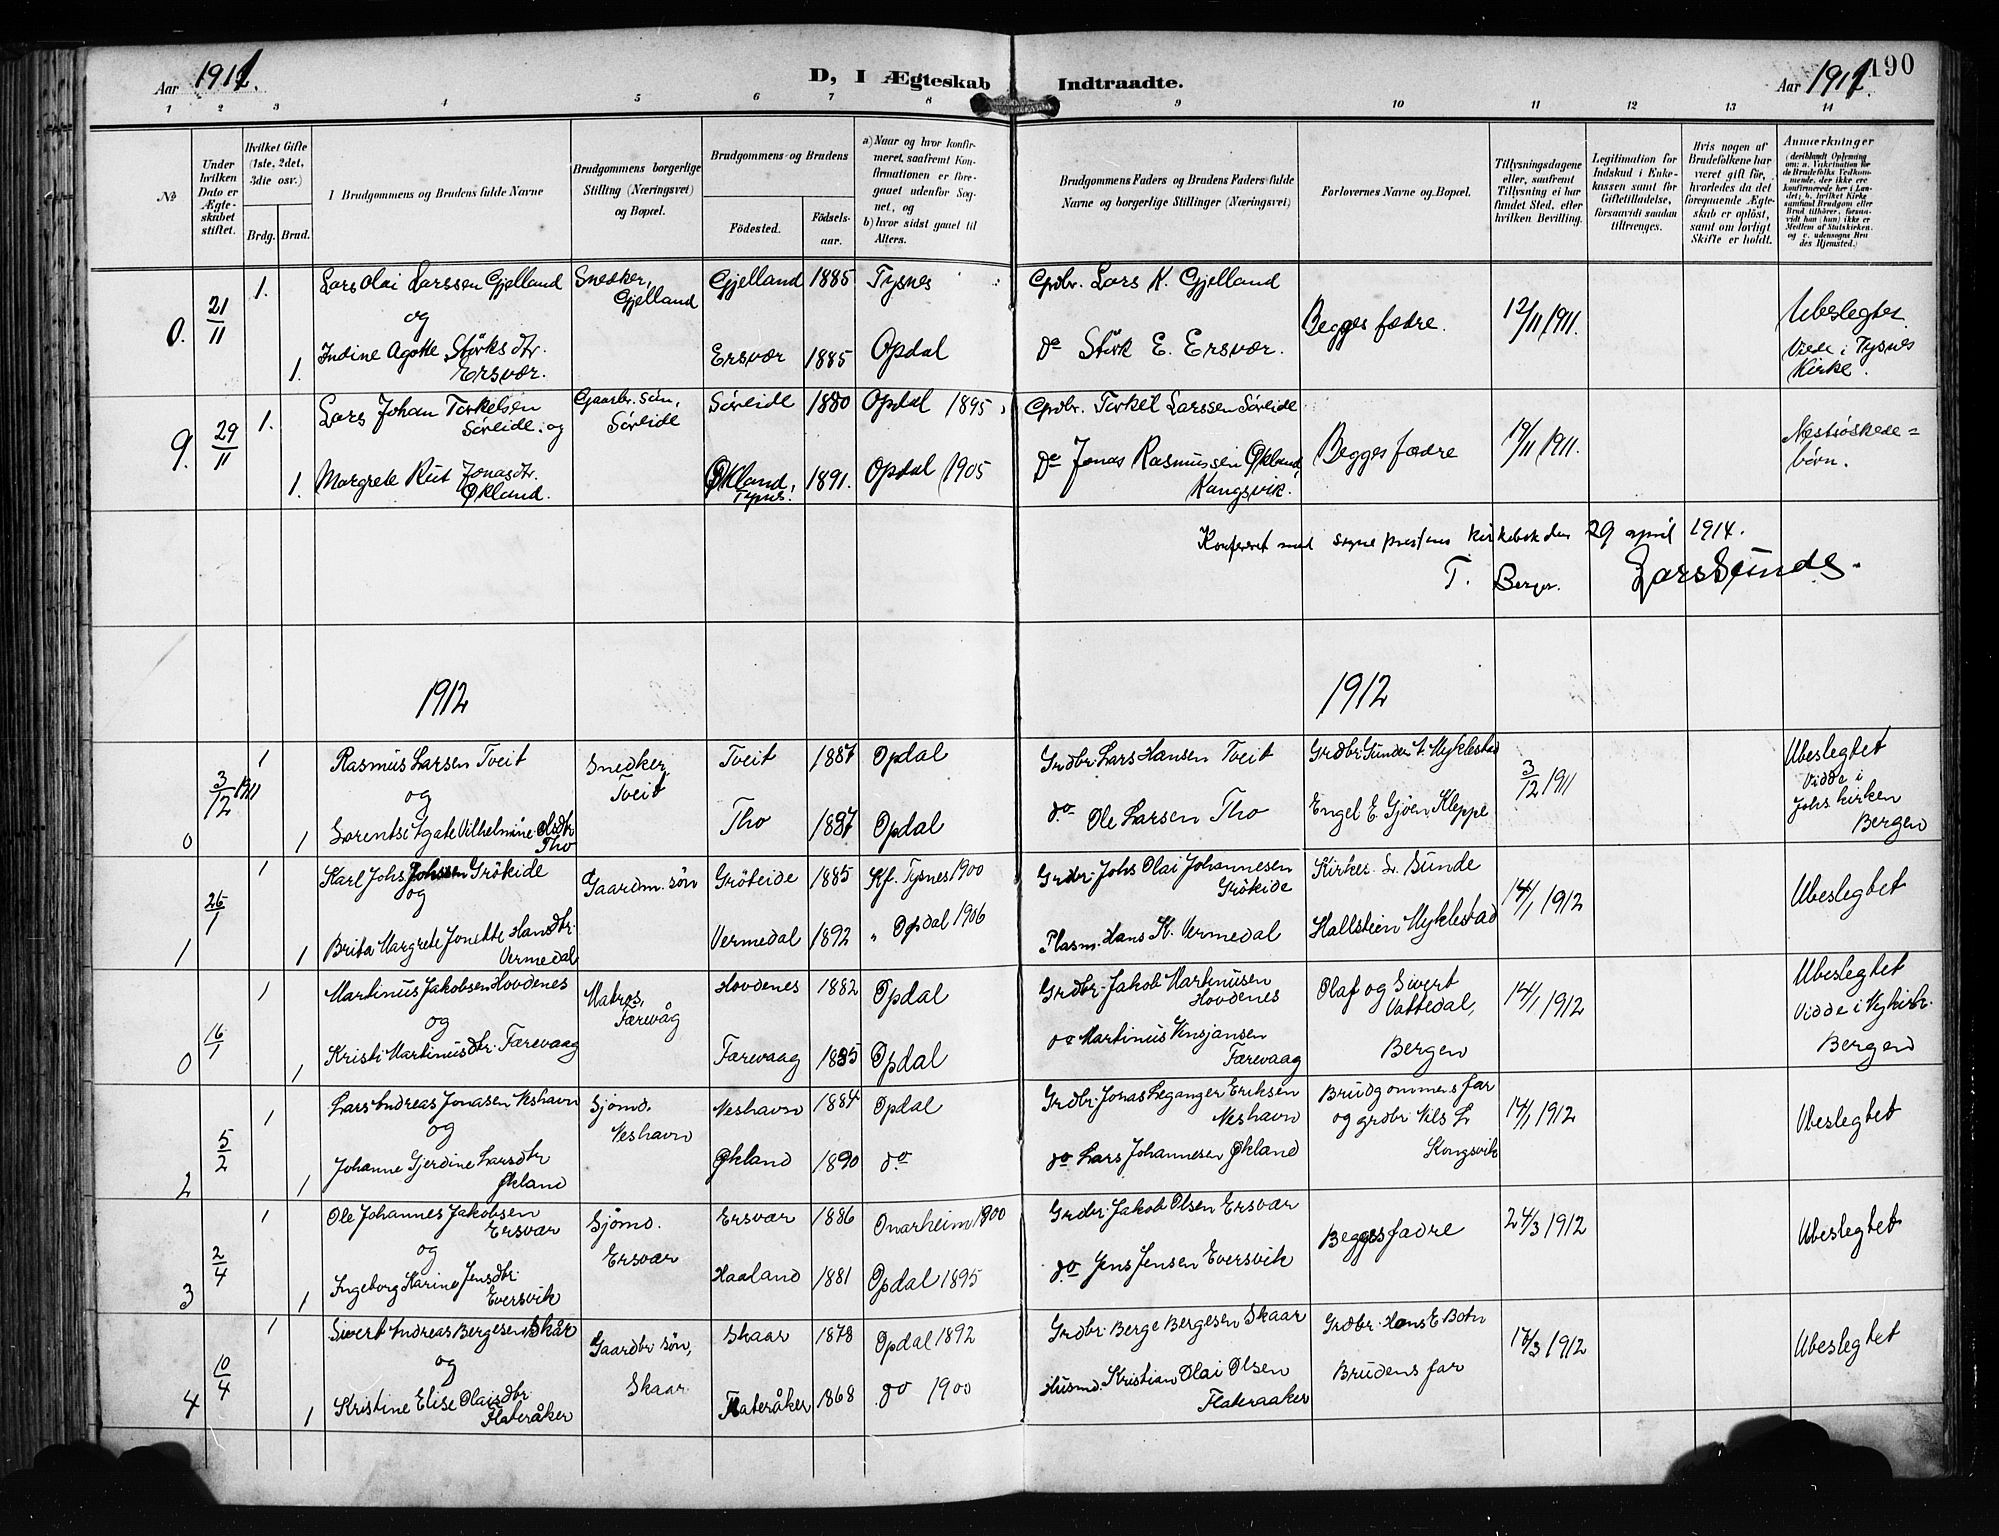 190
Aar 1911.
D, I Ægteskab Indtraadte.
Aar 1911.
1 2 3 4 5 6 7 8 9 10 11 12 13 14
№
Under hvilken Dato er Ægteskabet stiftet.
Hvilket Gifte (1ste, 2det, 3die osv.)
Brdg. Brud.
I Brudgommens og Brudens fulde Navne
Brudgommens borgerlige Stilling (Næringsvei) og Bopæl.
Brudgommens og Brudens
Födested. Födselsaar.
a) Naar og hvor konfirmeret, saafremt Konfirmationen er foregaaet udenfor Sognet, og
b) hvor sidst gaaet til Alters.
Brudgommens Faders og Brudens Faders fulde Navne og borgerlige Stillinger (Næringsvei)
Forlovernes Navne og Bopæl.
Tillysningsdagene eller, saafremt Tillysning ei har fundet Sted, efter hvilken Bevilling.
Legitimation for Indskud i Enkekassen samt for Giftetilladelse, forsaavidt saadan tiltrænges.
Hvis nogen af Brudefolkene har været gift før, hvorledes da det foregaaende Ægteskab er opløst, samt om lovligt Skifte er holdt.
Anmærkninger
(deriblandt Oplysning om: a. Vakcination for de Brudefolks Vedkommende, der ikke ere konfirmerede her i Landet; b. hvilket Kirkesamfund Brudgom eller Brud tilhører, forsaavidt han (hun) ikke er Medlem af Statskirken, og c. udensogns Brudes Hjemsted.)
0. 21/11 1. Lars Olai Larssen Gjelland Snedker, Gjelland Gjelland 1885 Tysnes Grdbr. Lars K. Gjelland Begges fædre. 12/11 1911. Ubeslegtet.
og
1. Indine Agotte Störksdtr. Ersvær. Ersvær 1885 Opdal do Störk E. Ersvær. Viede i Tysnes Kirke.
9. 29/11 1. Lars Johan Torkelsen Söreide. og Gaardbr. sön, Söreide Söreide 1880 Opdal 1895 Grdbr. Torkel Larssen Söreide Begges fædre 19/11 1911. Næstsöskedebörn.
1. Margrete Rut Jonasdtr. Økland. Økland, Tysnes. 1891. Opdal 1905 do Jonas Rasmussen Økland, Kangsvik.
Konfereret med sogneprestens kirkebok den 29 april 1914.
T. Berger. Lars Sunde.
1912 1912
0 3/12 1911 1 Rasmus Larsen Tveit Snedker Tveit Tveit 1887 Opdal Grdbr. Lars Hansen Tveit Grdbr. Gunder T. Myklestad 3/12 1911 Ubeslegtet
og
1 Lorentse Agate Vilhelmine Olsdtr Tho Tho 1887 Opdal do Ole Larsen Tho Engel E. Gjöen Kleppe Vidde i Johs kirken Bergen
1 26/1 1 Karl Johs Johssen Grökide Gaardm. søn Gröteide 1885 Kf. Tysnes 1900 Grdbr. Johs Olai Johannesen Grökide Kirkes. L. Sunde 14/1 1912 Ubeslegtet
og
1 Brita Margrete Jonette Hansdtr. Vermedal Vermedal 1892 " Opdal 1906 Plasm. Hans K. Vermedal Hallstein Myklestad
0 16/1 1 Martinus Jakobsen Hovdenes Matros, Færevåg Hovdenes 1882 Opdal Grdbr. Jakob Martinusen Hovdenes Olaf og Sivert Vattedal, 14/1 1912 Ubeslegtet
og
1 Kristi Martinusdtr. Færevaag Færevaag 1885 Opdal do Martinus Vinsjansen Færevaag Bergen Vidde i Nykirk. Bergen
2 5/2 1 Lars Andreas Jonasen Neshavn Sjömd. Neshavn Neshavn 1884 Opdal Grdbr. Jonas Leganger Eriksen Neshavn Brudgommens far og grdbr. Nils L Kongsvik 14/1 1912 Ubeslegtet
og
1 Johanne Gjerdine Larsdtr Økland Økland 1890 do do Lars Johannesen Økland
3 2/4 1 Ole Johannes Jakobsen Ersvær Sjömd. Ersvær Ersvær 1886 Onarheim 1900 Grdbr. Jakob Olsen Ersvær Begges fadre 24/3 1912 Ubeslegtet
og
1 Ingeborg Karine Jensdtr. Eversvik Haaland 1881 Opdal 1895 do Jens Jensen Eversvik
4 10/4 1 Sivert Andreas Bergesen Skår Gaardbr søn, Skaar Skaar 1878 Opdal 1892 Grdbr. Berge Bergesen Skaar Grdbr. Hans E Botn 17/3 1912 Ubeslegtet
og
1 Kristine Elise Olaisdtr. Flateråker Flateråker 1868 do 1900 Husmd. Kristian Olai Olsen Flateraaker Brudens far